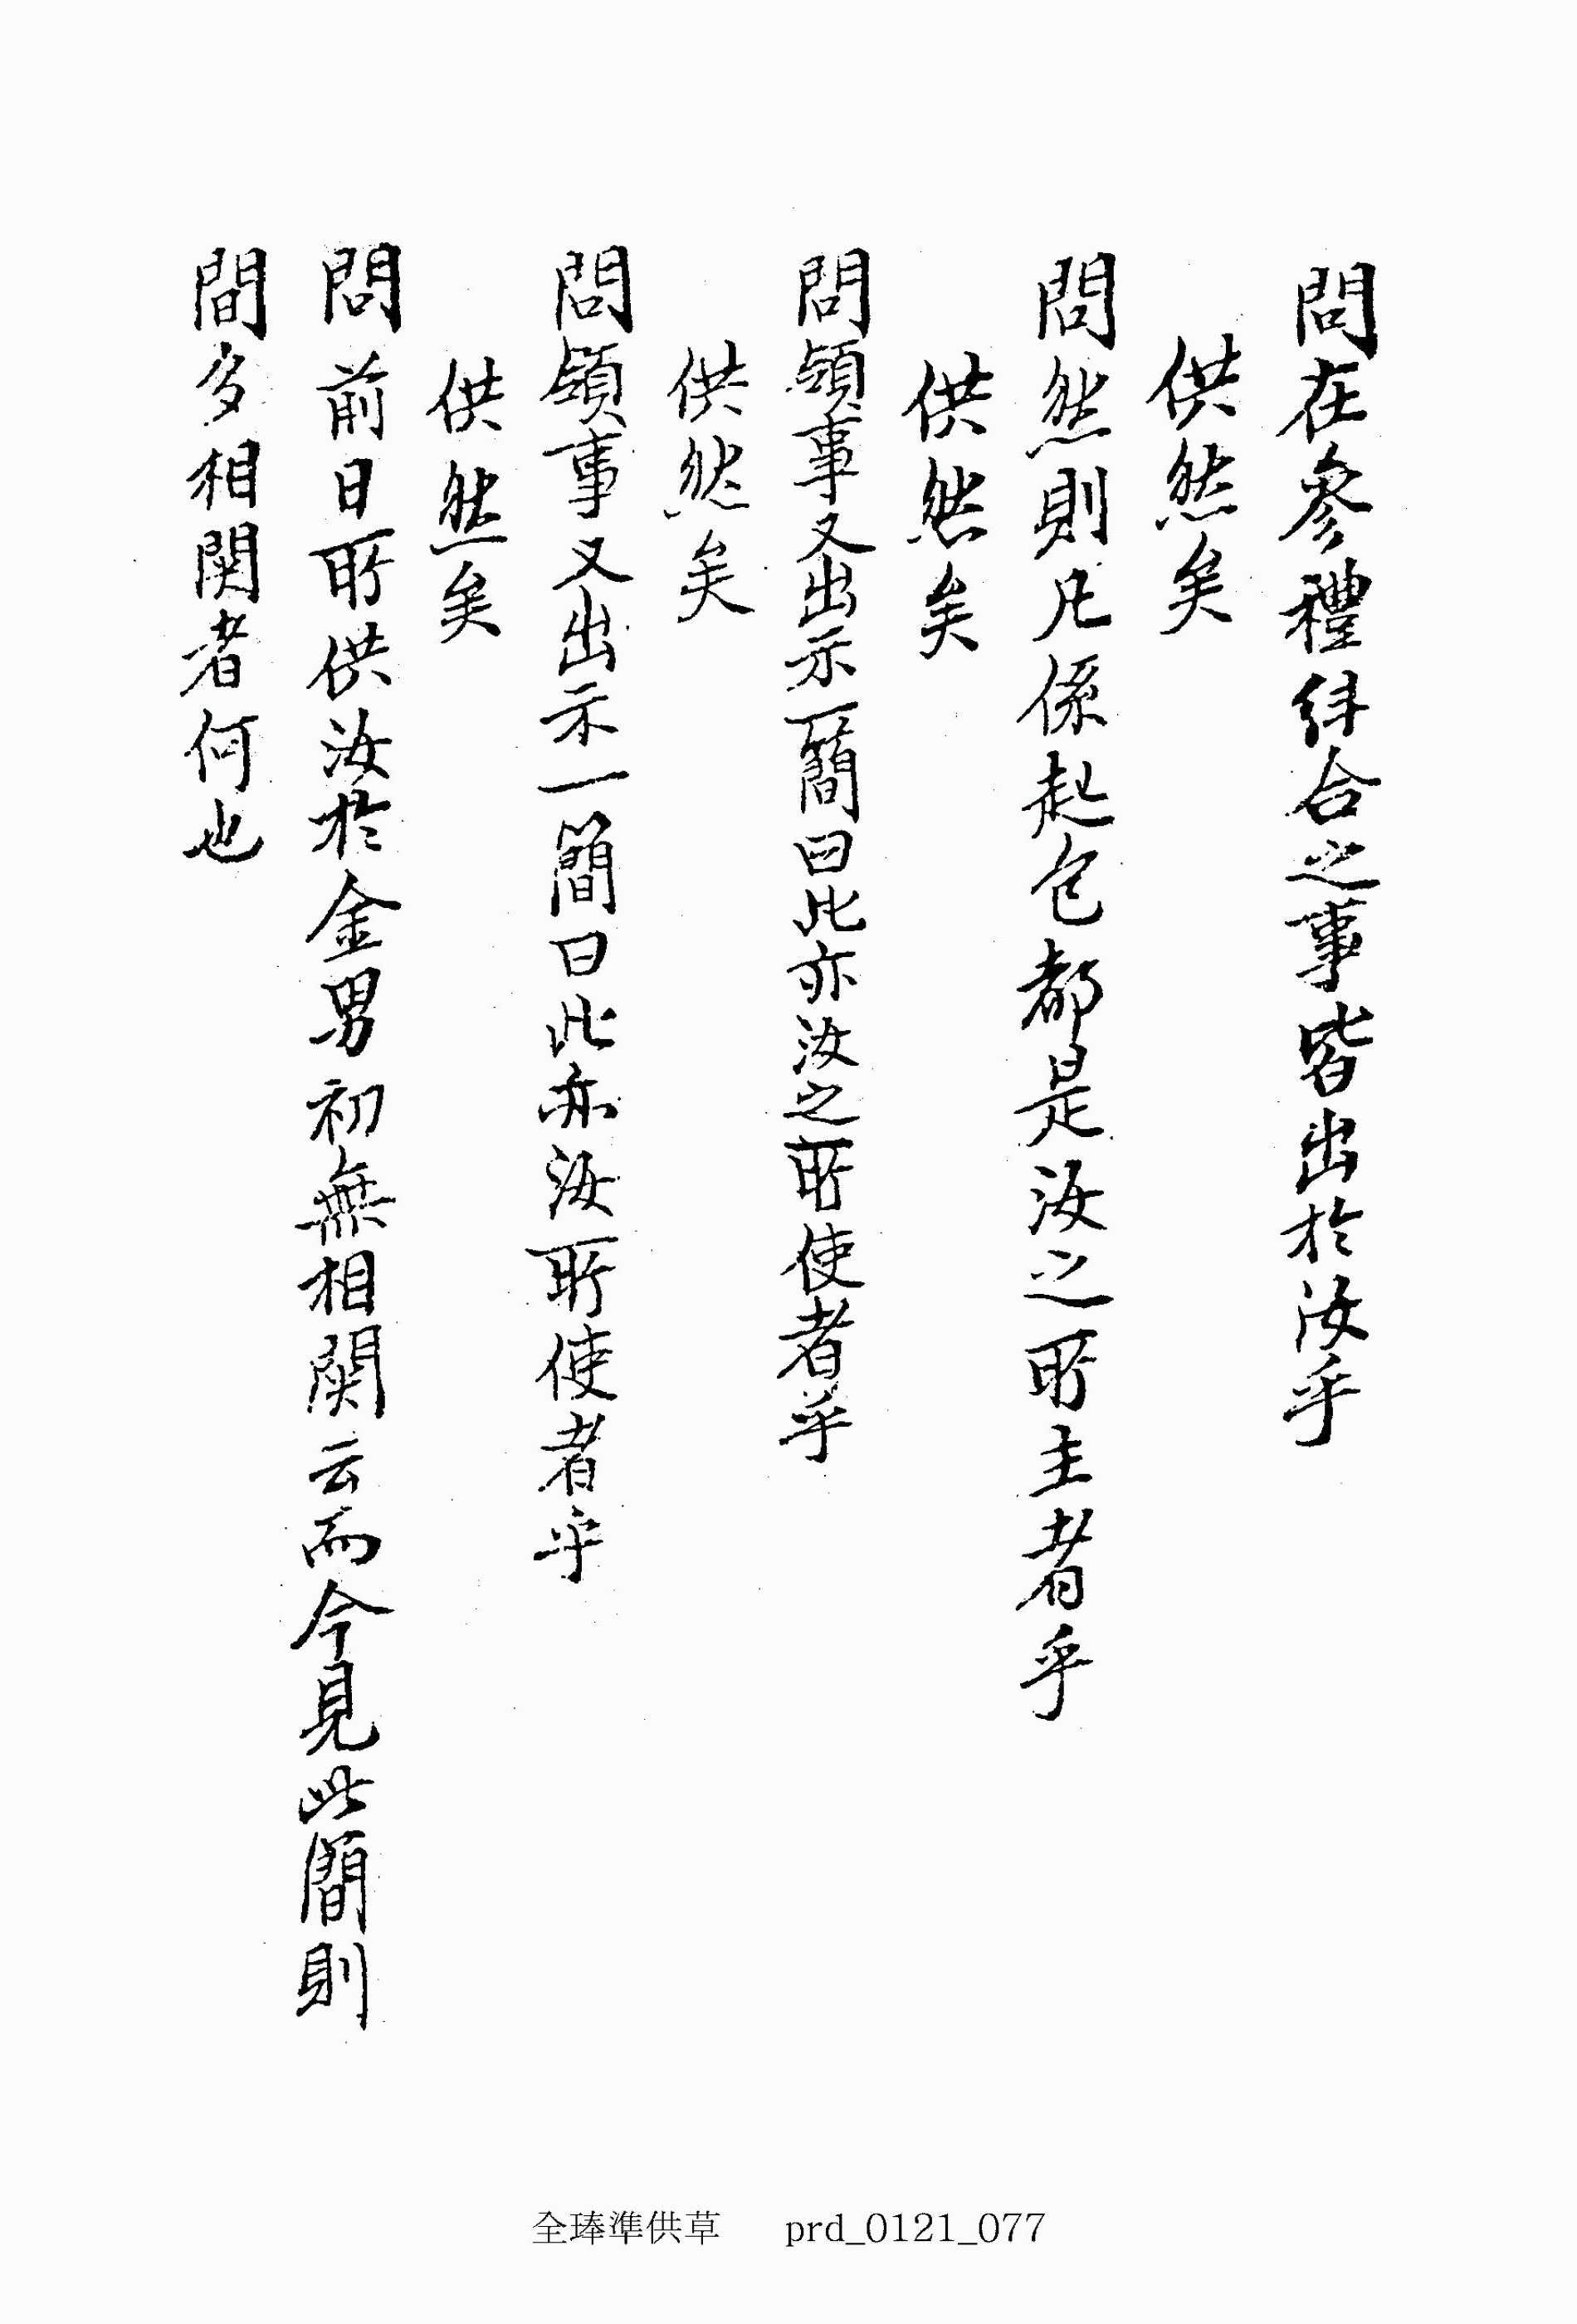 問在參禮糾合之事皆出於汝乎
供然矣
問然則凡係起包都是汝之所主者乎
供然矣
問領事又出示一簡曰此亦汝之所使者乎
供然矣
問領事又出示一簡曰此亦汝所使者乎
供然矣
問前日所供汝於金男初無相関云而今見此簡則
間多相関者何也
全琫準供草 prd_0121_077